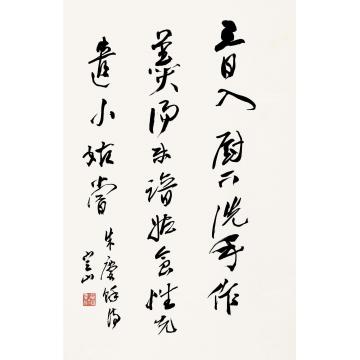 三日入厨下洗手作
羹湯未諳姑食性先
遣小姑嘗 朱慶餘詩